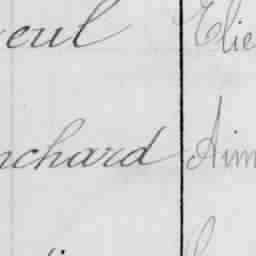 eul Elie
nchard Aim